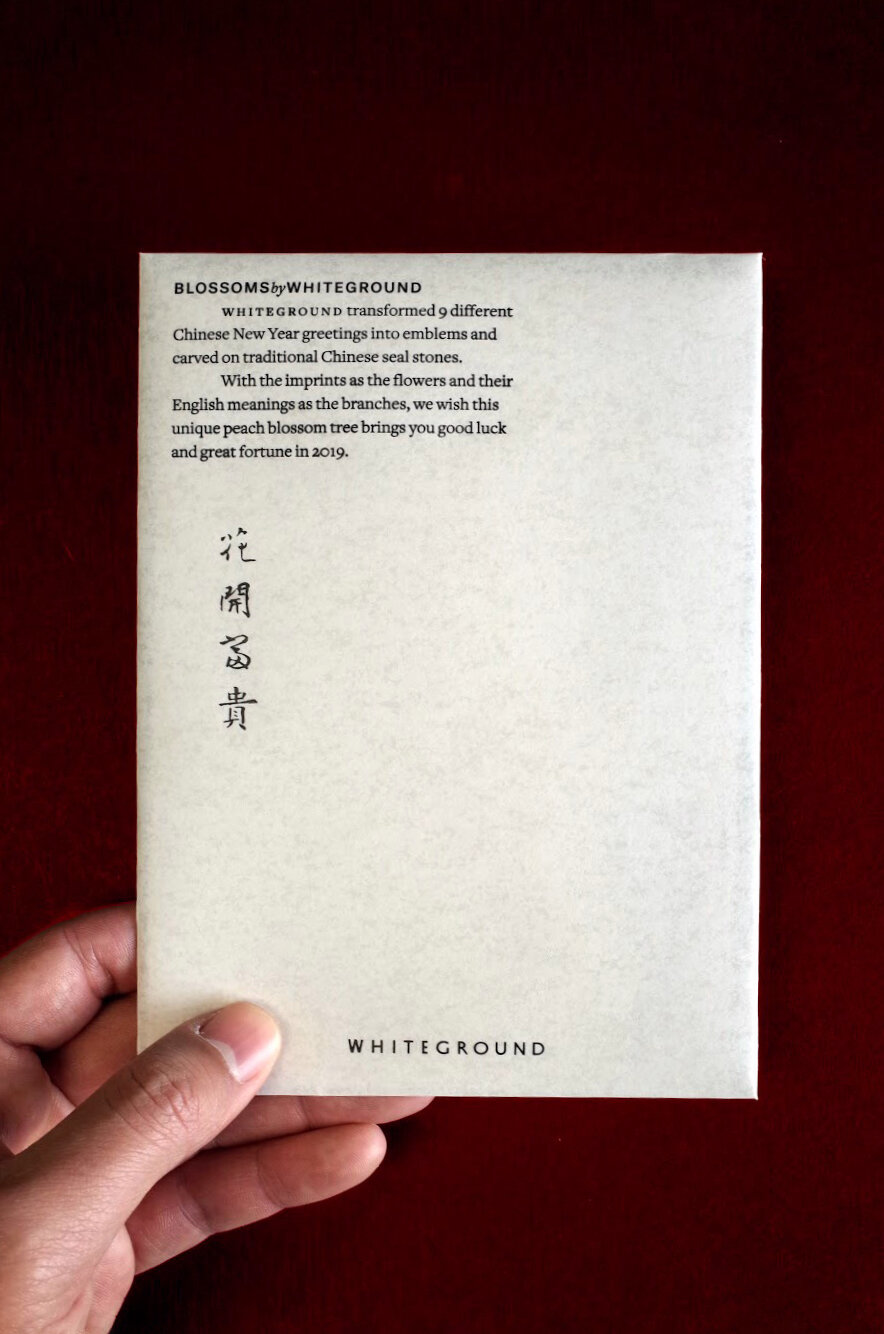 BLOSSOMSbyWHITEGROUND
WHITEGROUND transformed 9 different
Chinese New Year greetings into emblems and
carved on traditional Chinese seal stones.
With the imprints as the flowers and their
English meanings as the branches, we wish this
unique peach blossom tree brings you good luck
and great fortune in 2019.
花開富貴
WHITEGROUND